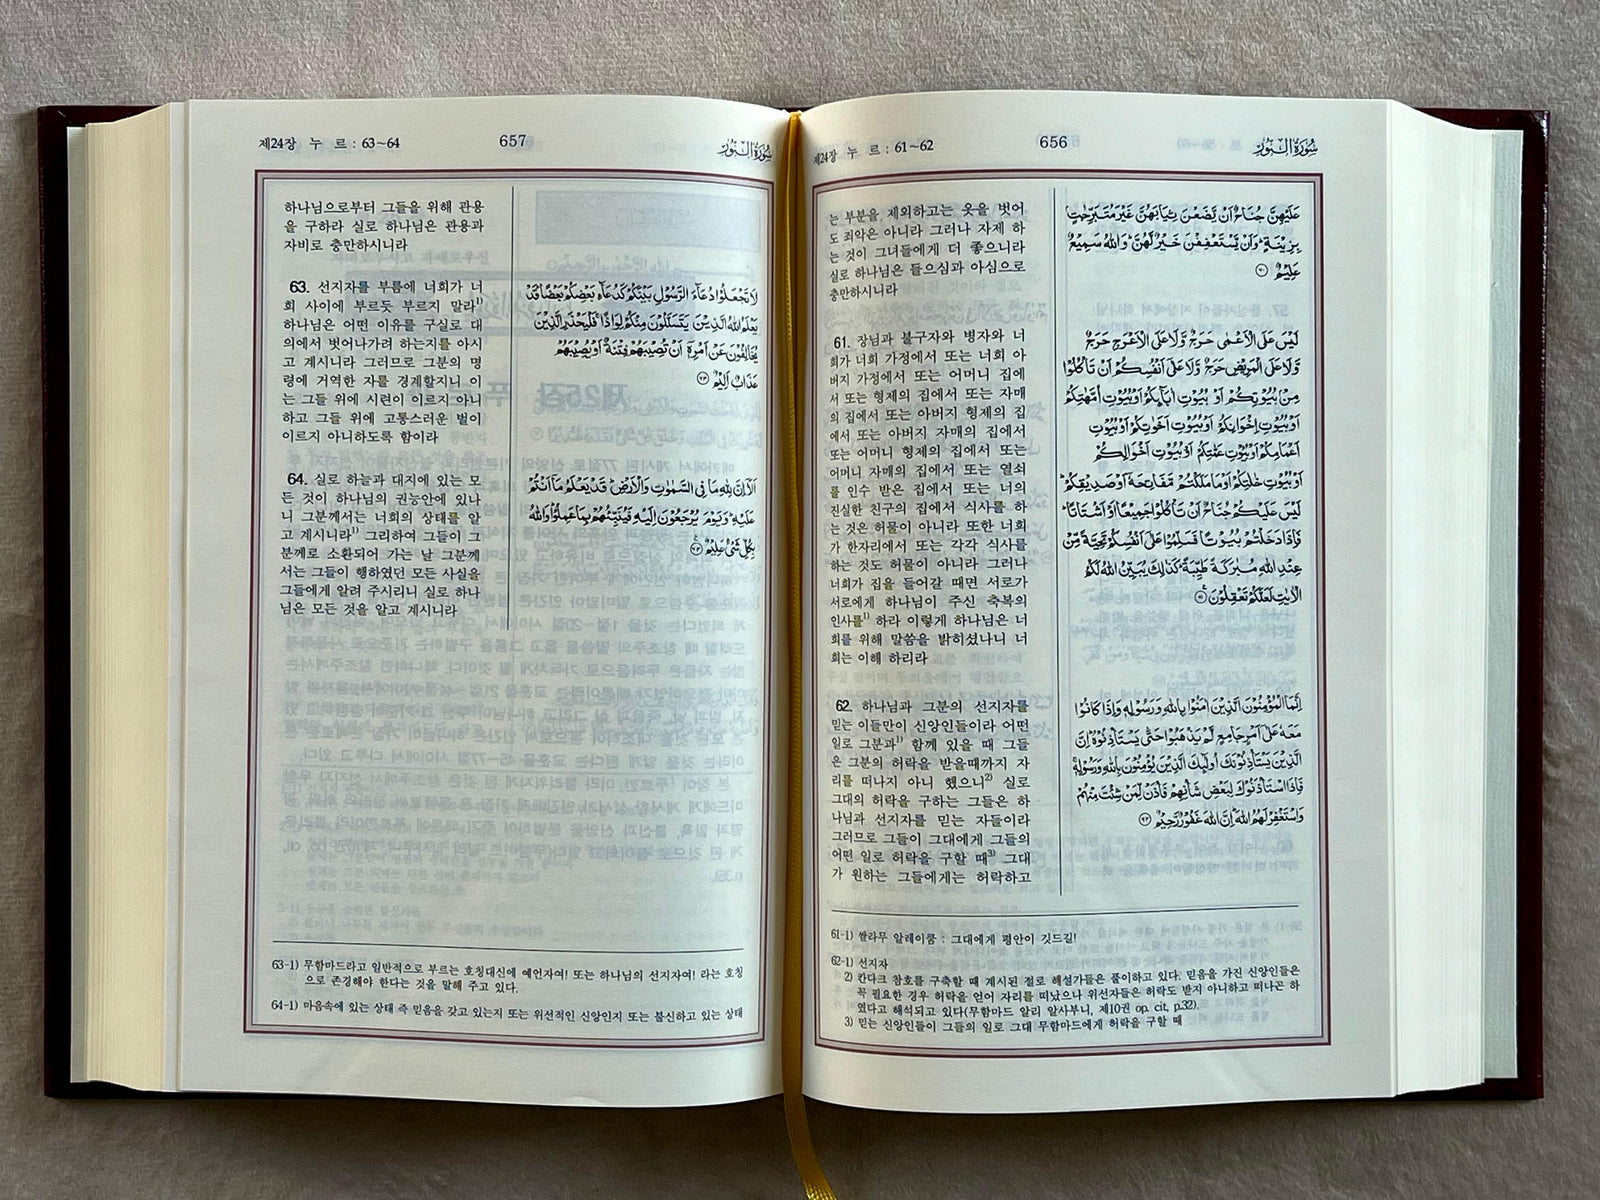 제24장 누 르 : 61~62
656
سُورَةُ النُّورِ
عَلَيْهِنَّ جُنَاحٌ اَنْ يَّضَعْنَ ثِيَابَهُنَّ غَيْرَ مُتَبَرِّجٰتٍۭ
بِزِيْنَةٍ ۭ وَاَنْ يَّسْتَعْفِفْنَ خَيْرٌ لَّهُنَّ ۭ وَاللّٰهُ سَمِيْعٌ
عَلِيْمٌ ۝٦٠
는 부분을 제외하고는 옷을 벗어
도 죄악은 아니라 그러나 자제 하
는 것이 그녀들에게 더 좋으니라
실로 하나님은 들으심과 아심으로
충만하시니라
لَيْسَ عَلَى الْاَعْمٰى حَرَجٌ وَّلَا عَلَى الْاَعْرَجِ حَرَجٌ
وَّلَا عَلَى الْمَرِيْضِ حَرَجٌ وَّلَا عَلٰٓى اَنْفُسِكُمْ اَنْ تَاْكُلُوْا
مِنْۢ بُيُوْتِكُمْ اَوْ بُيُوْتِ اٰبَآئِكُمْ اَوْ بُيُوْتِ اُمَّهٰتِكُمْ
اَوْ بُيُوْتِ اِخْوَانِكُمْ اَوْ بُيُوْتِ اَخَوٰتِكُمْ اَوْ بُيُوْتِ
اَعْمَامِكُمْ اَوْ بُيُوْتِ عَمّٰتِكُمْ اَوْ بُيُوْتِ اَخْوَالِكُمْ
اَوْ بُيُوْتِ خٰلٰتِكُمْ اَوْ مَا مَلَكْتُمْ مَّفَاتِحَهٗٓ اَوْ صَدِيْقِكُمْ ۭ
لَيْسَ عَلَيْكُمْ جُنَاحٌ اَنْ تَاْكُلُوْا جَمِيْعًا اَوْ اَشْتَاتًا ۭ
فَاِذَا دَخَلْتُمْ بُيُوْتًا فَسَلِّمُوْا عَلٰٓى اَنْفُسِكُمْ تَحِيَّةً مِّنْ
عِنْدِ اللّٰهِ مُبٰرَكَةً طَيِّبَةً ۭ كَذٰلِكَ يُبَيِّنُ اللّٰهُ لَكُمُ
الْاٰيٰتِ لَعَلَّكُمْ تَعْقِلُوْنَ ۝٦١
61. 장님과 불구자와 병자와 너
희가 너희 가정에서 또는 너희 아
버지 가정에서 또는 어머니 집에
서 또는 형제의 집에서 또는 자매
의 집에서 또는 아버지 형제의 집
에서 또는 아버지 자매의 집에서
또는 어머니 형제의 집에서 또는
어머니 자매의 집에서 또는 열쇠
를 인수 받은 집에서 또는 너의
진실한 친구의 집에서 식사를 하
는 것은 허물이 아니라 또한 너희
가 한자리에서 또는 각각 식사를
하는 것도 허물이 아니라 그러나
너희가 집을 들어갈 때면 서로가
서로에게 하나님이 주신 축복의
인사를1) 하라 이렇게 하나님은 너
희를 위해 말씀을 밝히셨나니 너
희는 이해 하리라
اِنَّمَا الْمُؤْمِنُوْنَ الَّذِيْنَ اٰمَنُوْا بِاللّٰهِ وَرَسُوْلِهٖ وَاِذَا كَانُوْا
مَعَهٗ عَلٰٓى اَمْرٍ جَامِعٍ لَّمْ يَذْهَبُوْا حَتّٰى يَسْتَاْذِنُوْهُ ۭ اِنَّ
الَّذِيْنَ يَسْتَاْذِنُوْنَكَ اُولٰٓئِكَ الَّذِيْنَ يُؤْمِنُوْنَ بِاللّٰهِ وَرَسُوْلِهٖ ۚ
فَاِذَا اسْتَاْذَنُوْكَ لِبَعْضِ شَاْنِهِمْ فَاْذَنْ لِّمَنْ شِئْتَ مِنْهُمْ
وَاسْتَغْفِرْ لَهُمُ اللّٰهَ ۭ اِنَّ اللّٰهَ غَفُوْرٌ رَّحِيْمٌ ۝٦٢
62. 하나님과 그분의 선지자를
믿는 이들만이 신앙인들이라 어떤
일로 그분과1) 함께 있을 때 그들
은 그분의 허락을 받을때까지 자
리를 떠나지 아니 했으니2) 실로
그대의 허락을 구하는 그들은 하
나님과 선지자를 믿는 자들이라
그러므로 그들이 그대에게 그들의
어떤 일로 허락을 구할 때3) 그대
가 원하는 그들에게는 허락하고
61-1) 쌀라무 알레이쿰 : 그대에게 평안이 깃드길!
62-1) 선지자
2) 칸다크 참호를 구축할 때 계시된 절로 해설가들은 풀이하고 있다. 믿음을 가진 신앙인들은
꼭 필요한 경우 허락을 얻어 자리를 떠났으나 위선자들은 허락도 받지 아니하고 떠나곤 하
였다고 해석되고 있다(무함마드 알리 알사부니, 제10권 op. cit, p.32).
3) 믿는 신앙인들이 그들의 일로 그대 무함마드에게 허락을 구할 때
제24장 누 르 : 63~64
657
سُورَةُ النُّورِ
하나님으로부터 그들을 위해 관용
을 구하라 실로 하나님은 관용과
자비로 충만하시니라
لَا تَجْعَلُوْا دُعَآءَ الرَّسُوْلِ بَيْنَكُمْ كَدُعَآءِ بَعْضِكُمْ بَعْضًا ۭ قَدْ
يَعْلَمُ اللّٰهُ الَّذِيْنَ يَتَسَلَّلُوْنَ مِنْكُمْ لِوَاذًا ۚ فَلْيَحْذَرِ الَّذِيْنَ
يُخَالِفُوْنَ عَنْ اَمْرِهٖٓ اَنْ تُصِيْبَهُمْ فِتْنَةٌ اَوْ يُصِيْبَهُمْ
عَذَابٌ اَلِيْمٌ ۝٦٣
63. 선지자를 부름에 너희가 너
희 사이에 부르듯 부르지 말라1)
하나님은 어떤 이유를 구실로 대
의에서 벗어나가려 하는지를 아시
고 계시니라 그러므로 그분의 명
령에 거역한 자를 경계할지니 이
는 그들 위에 시련이 이르지 아니
하고 그들 위에 고통스러운 벌이
이르지 아니하도록 함이라
اَلَآ اِنَّ لِلّٰهِ مَا فِي السَّمٰوٰتِ وَالْاَرْضِ ۭ قَدْ يَعْلَمُ مَآ اَنْتُمْ
عَلَيْهِ ۭ وَيَوْمَ يُرْجَعُوْنَ اِلَيْهِ فَيُنَبِّئُهُمْ بِمَا عَمِلُوْا ۭ وَاللّٰهُ
بِكُلِّ شَيْءٍ عَلِيْمٌ ۝٦٤
64. 실로 하늘과 대지에 있는 모
든 것이 하나님의 권능안에 있나
니 그분께서는 너희의 상태를 알
고 계시니라1) 그리하여 그들이 그
분께로 소환되어 가는 날 그분께
서는 그들이 행하였던 모든 사실을
그들에게 알려 주시리니 실로 하나
님은 모든 것을 알고 계시니라
63-1) 무함마드라고 일반적으로 부르는 호칭대신에 예언자여! 또는 하나님의 선지자여! 라는 호칭
으로 존경해야 한다는 것을 말해 주고 있다.
64-1) 마음속에 있는 상태 즉 믿음을 갖고 있는지 또는 위선적인 신앙인지 또는 불신하고 있는 상태